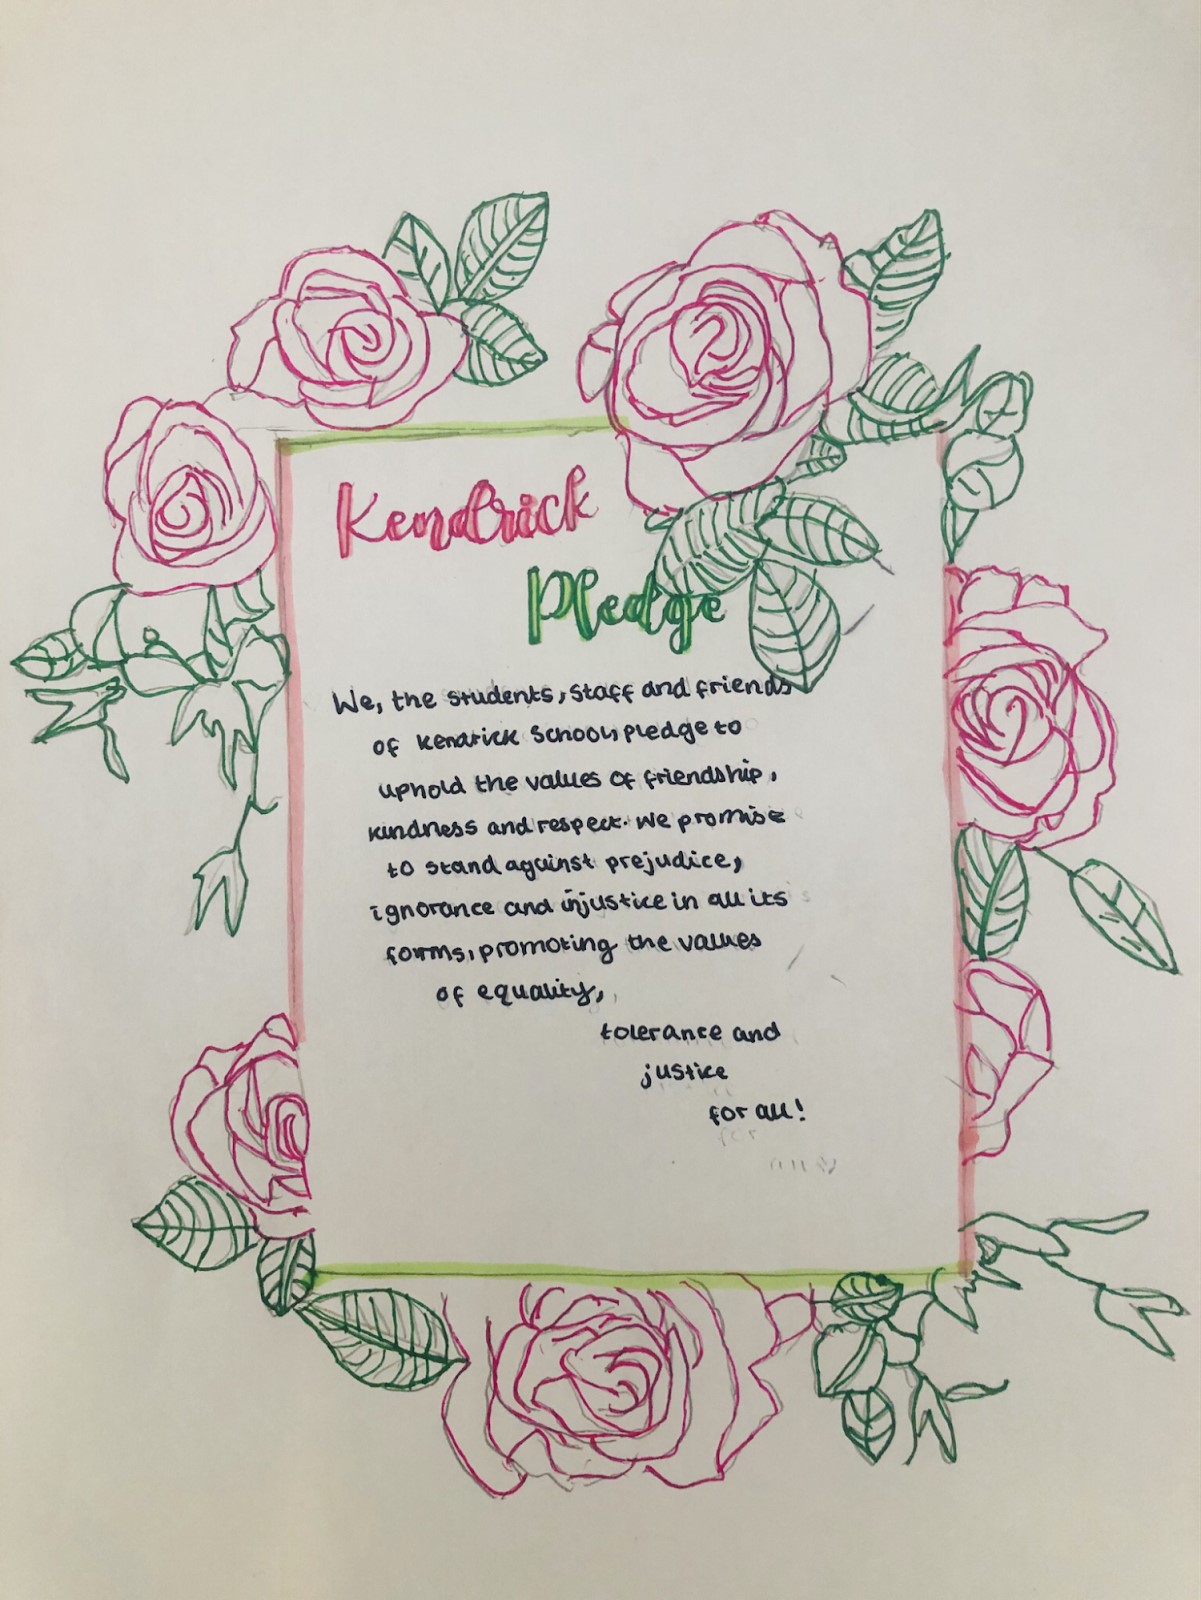 Kendrick
Pledge
We, the students, staff and friends
of Kendrick School, pledge to
uphold the values of friendship,
kindness and respect. We promise
to stand against prejudice,
ignorance and injustice in all its
forms, promoting the values
of equality,
tolerance and
justice
for all!